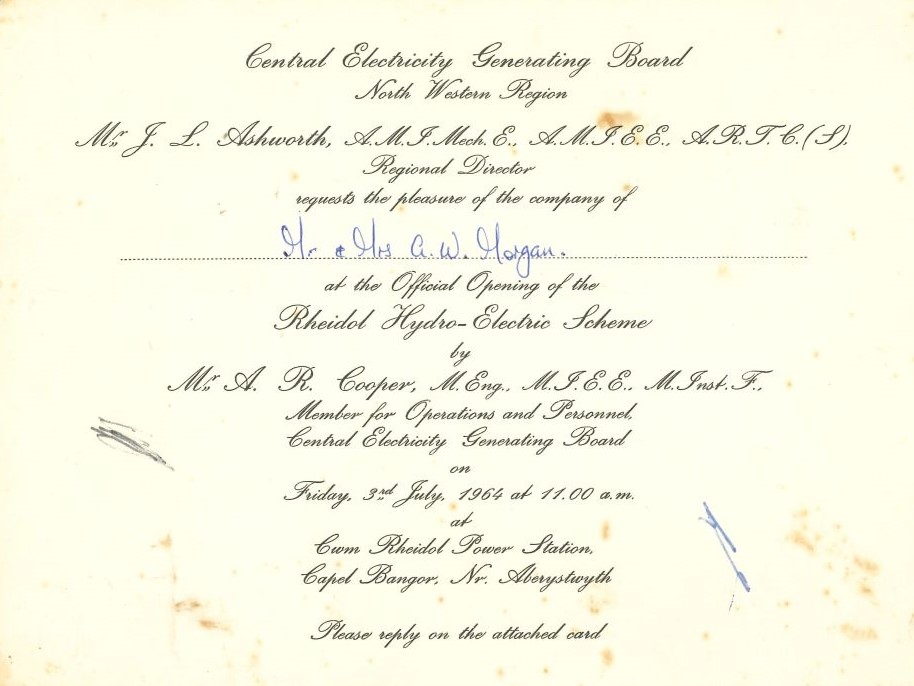 Central Electricity Generating Board
North Western Region
Mr. J. L. Ashworth, A.M.I.Mech.E., A.M.I.E.E., A.R.T.C.(S).
Regional Director
requests the pleasure of the company of
Mr & Mrs G.W. Morgan.
at the Official Opening of the
Rheidol Hydro-Electric Scheme
by
Mr. A. R. Cooper, M.Eng., M.I.E.E., M.Inst.F.,
Member for Operations and Personnel,
Central Electricity Generating Board
on
Friday, 3rd July, 1964 at 11.00 a.m.
at
Cwm Rheidol Power Station,
Capel Bangor, Nr. Aberystwyth
Please reply on the attached card